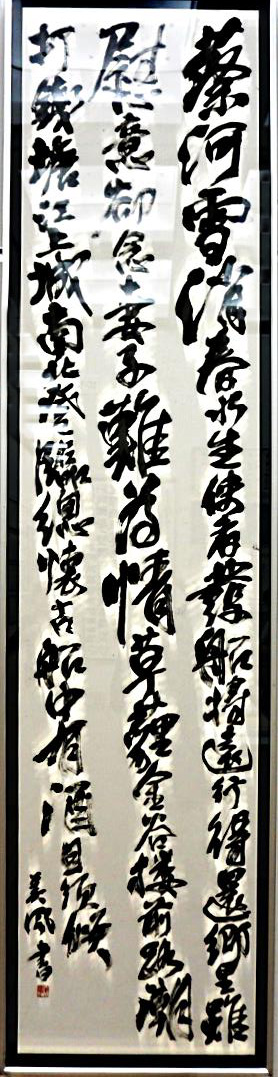 蔡河雪消春水生使者發船將遠行得還鄉里雖
慰意卻念妻子難為情草薶金谷樓前路潮
打錢塘江上城南北登臨總懷古船中有酒且須傾
美鳳書